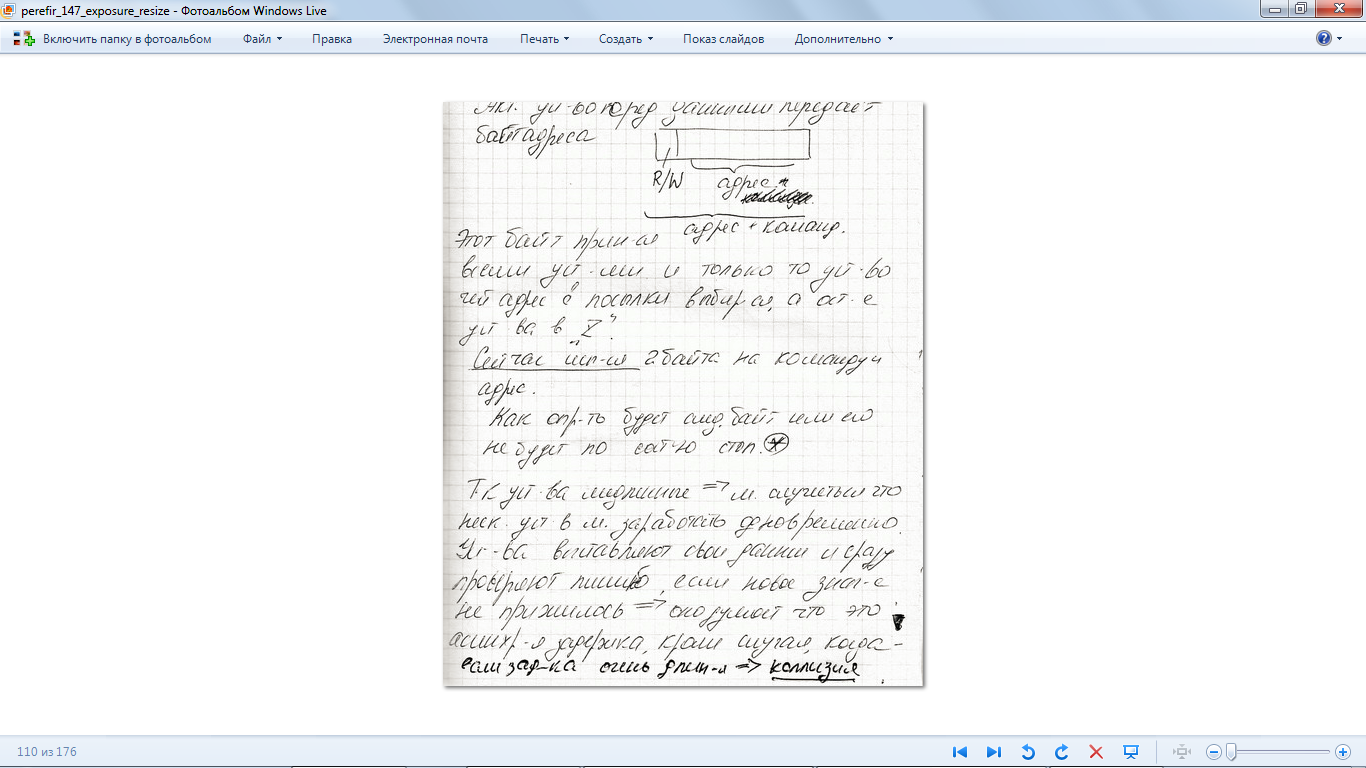 perefir_147_exposure_resize - Фотоальбом Windows Live
Включить папку в фотоальбом Файл Правка Электронная почта Печать Создать Показ слайдов Дополнительно
Акт. уст-во перед данными передает
байт адреса
R/W адрес
адрес + команд.
Этот байт прин-ся
всеми уст-ми и только то уст-во
чей адрес в посылки выбир-ся, а ост-е
уст ва в "Z".
Сейчас исп-ся 2 байта на команду и
адрес.
Как опр-ть будет след. байт или его
не будет по сост-ю стоп. *
Т.к уст-ва => м. случиться что
неск. уст в м. заработать одновременно.
Ус-ва выставляют свои данные и сразу
проверяют, если новое знач-е
не прижилось => оно думает что это
задержка, кроме случая, когда -
если зад-ка очень длин-я => коллизия
110 из 176